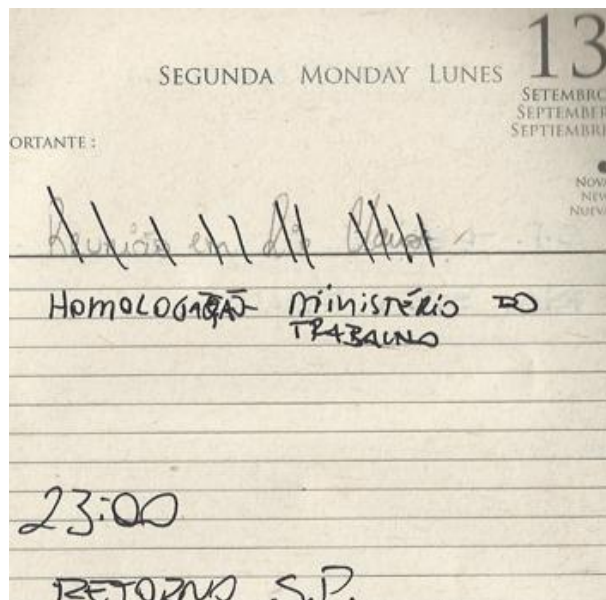 SEGUNDA MONDAY LUNES
13
SETEMBRO
SEPTEMBER
SEPTIEMBRE
ORTANTE :
NOVA
NEW
NUEVA
Reunión em Rio
HOMOLOGAÇÃO MINISTÉRIO DO
TRABALHO
23:00
RETORNO S.P.